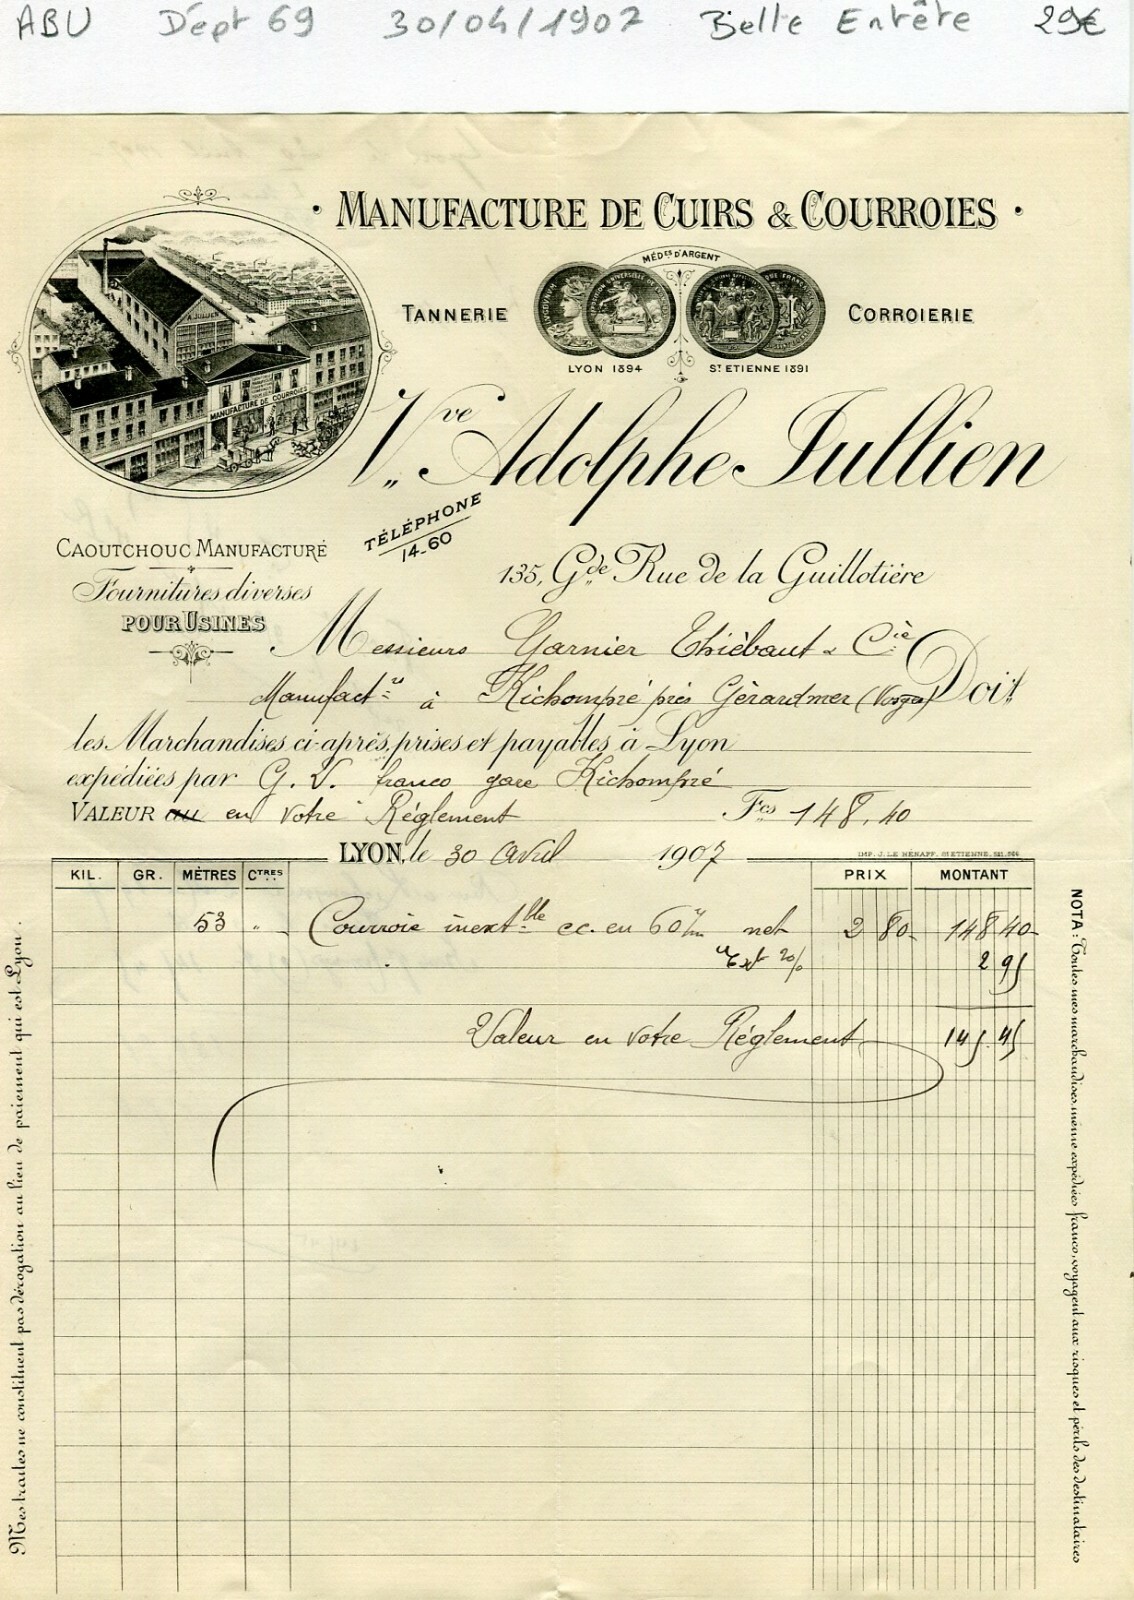 ABU Dépt 69 30/04/1907 Belle Entête 29€
· MANUFACTURE DE CUIRS & COURROIES ·
MÉDES D'ARGENT
TANNERIE
CORROIERIE
LYON 1894
ST ETIENNE 1891
A. JULLIEN
MANUFACTURE DE COURROIES
Vve Adolphe Jullien
TÉLÉPHONE
14-60
CAOUTCHOUC MANUFACTURÉ
Fournitures diverses
POUR USINES
135, Gde Rue de la Guillotière
Messieurs Garnier Thiébaut & Cie
Manufact.rs à Kichompré près Gérardmer (Vosges) Doit
les Marchandises ci-après, prises et payables à Lyon
expédiées par G. V. franco gare Kichompré
VALEUR au en votre Règlement Fcs 148,40
LYON, le 30 Avril 1907
IMP. J. LE HÉNAFF, ST ETIENNE.
KIL. GR. MÈTRES CTRES PRIX MONTANT
53 " Courroie inextble cc. en 60 m/m net 2 80 148 40
Ext 2% 2 95
Valeur en votre Règlement 145.45
Mes traites ne constituent pas dérogation au lieu de paiement qui est Lyon.
NOTA : Toutes mes marchandises, même expédiées franco, voyagent aux risques et périls des destinataires